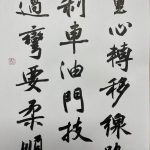 重心轉移線路
車油門技
過彎要柔順